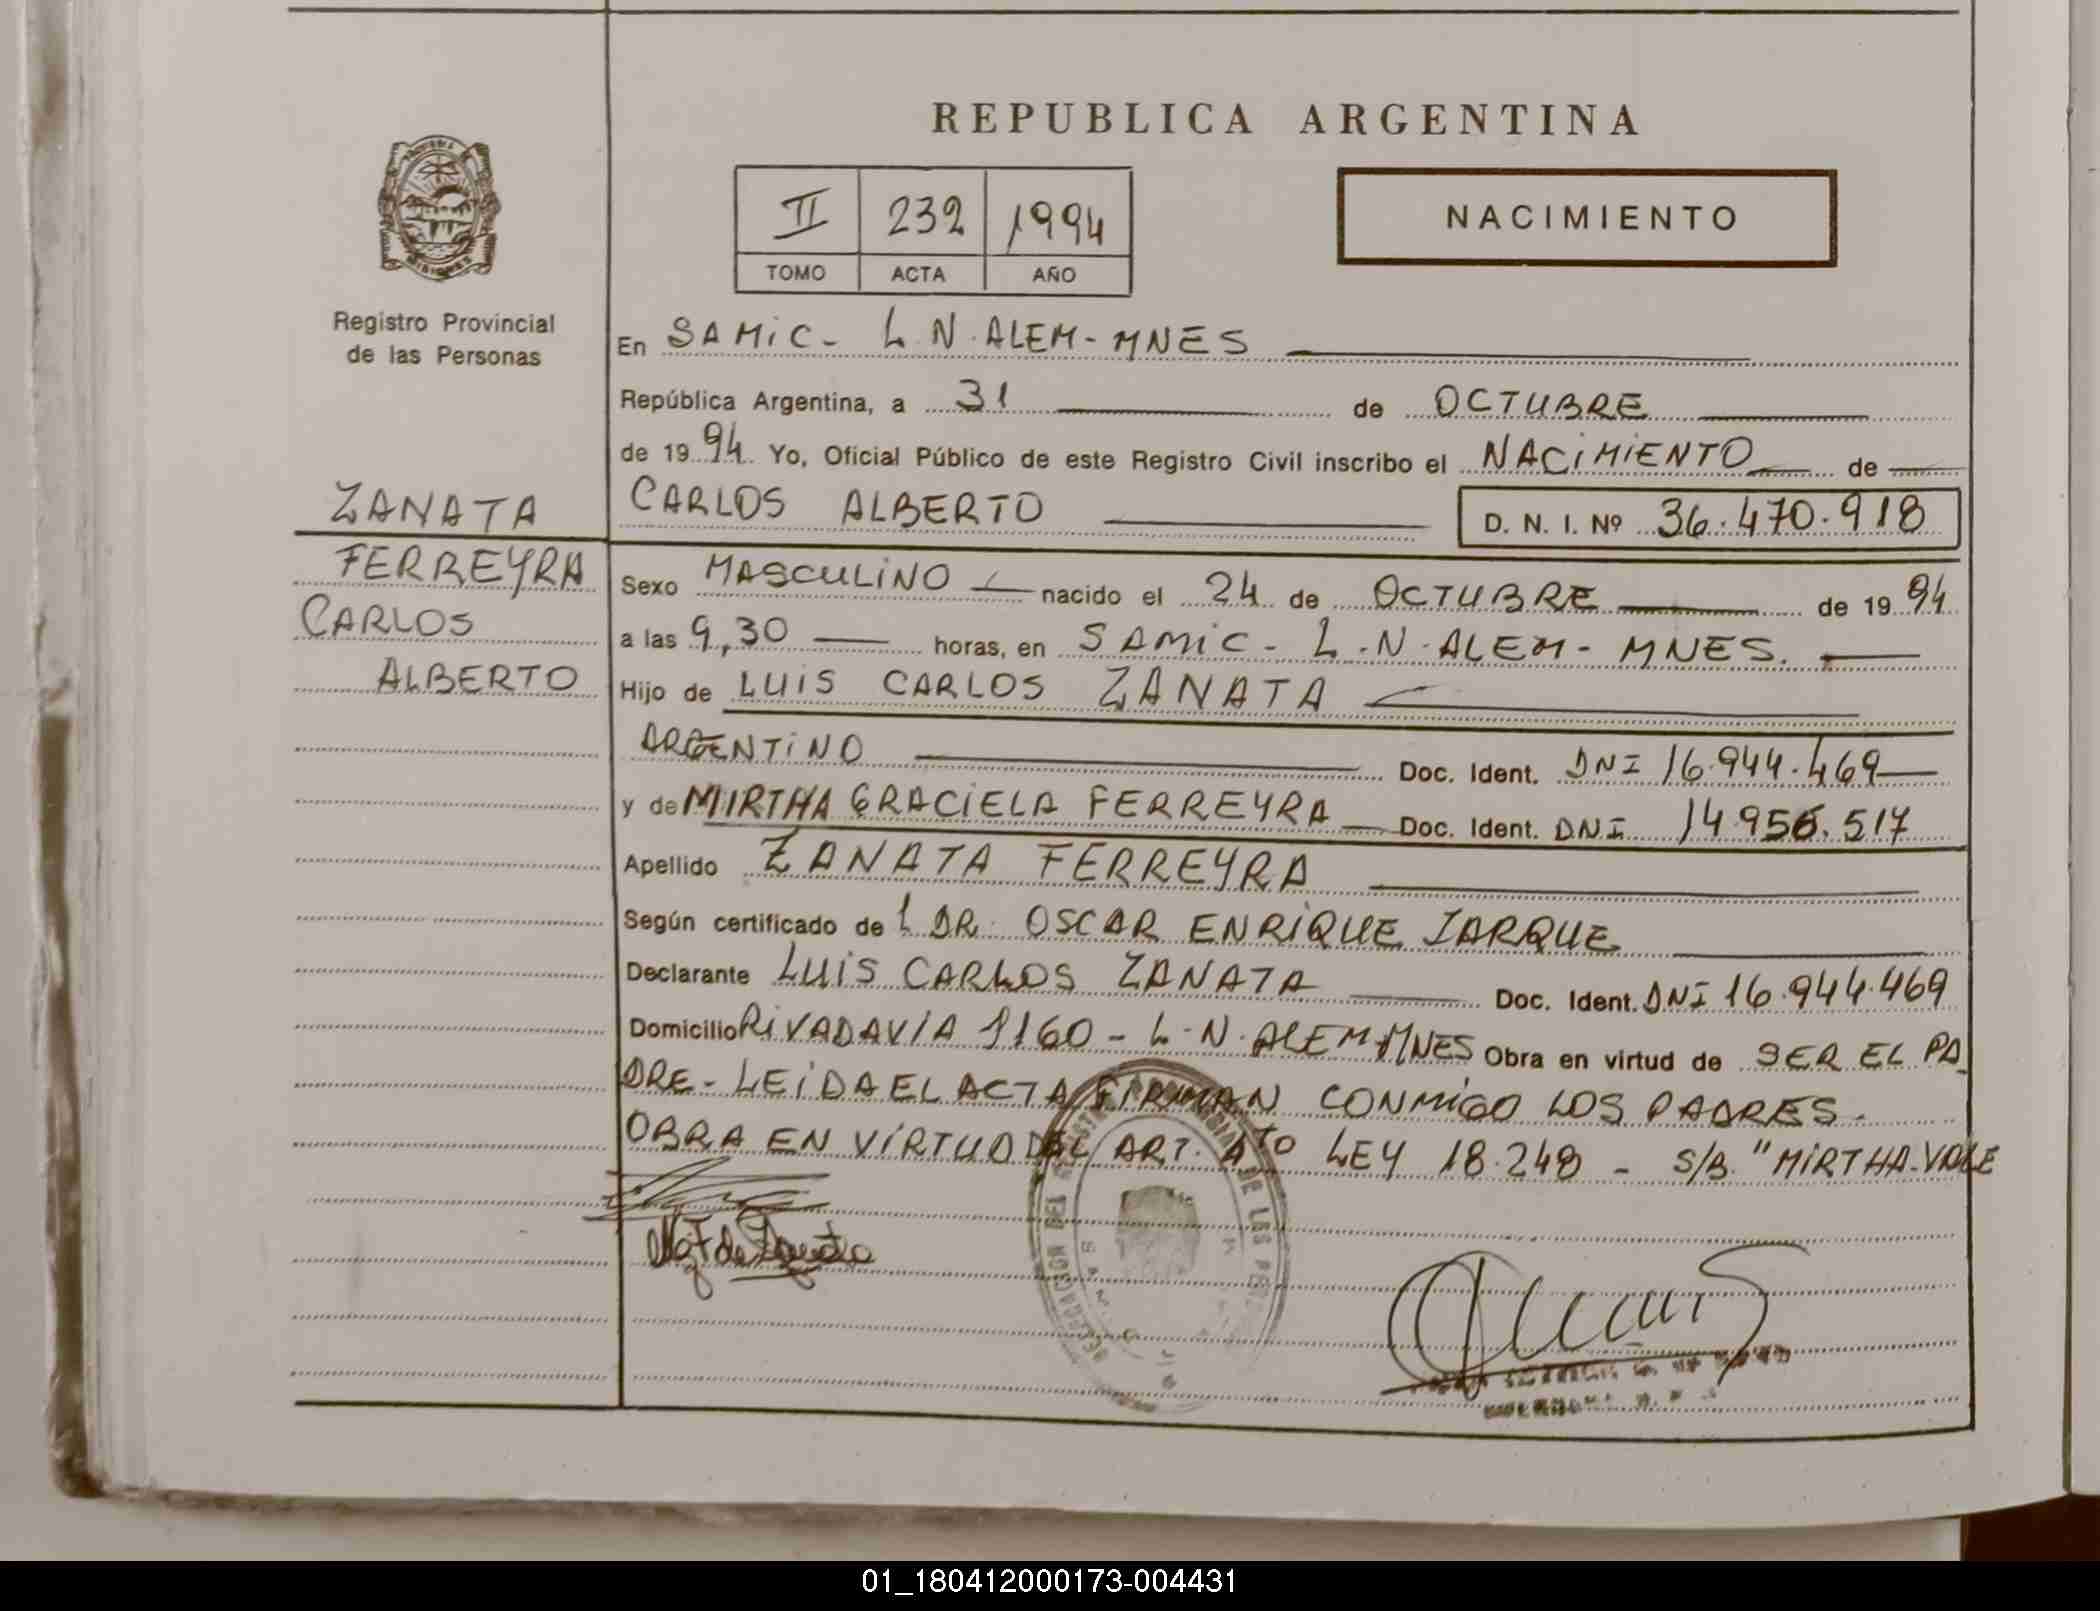 REPUBLICA ARGENTINA
II 232 1994
TOMO ACTA AÑO
NACIMIENTO
MISIONES
Registro Provincial
de las Personas
En SAMIC - L.N.ALEM - MNES
República Argentina, a 31 de OCTUBRE
de 1994 Yo, Oficial Público de este Registro Civil inscribo el NACIMIENTO de
CARLOS ALBERTO D. N. I. Nº 36.470.918
ZANATA
FERREYRA
CARLOS
ALBERTO
Sexo MASCULINO nacido el 24 de OCTUBRE de 1994
a las 9,30 horas, en SAMIC - L.N.ALEM - MNES.
Hijo de LUIS CARLOS ZANATA
ARGENTINO Doc. Ident. DNI 16.944.469
y de MIRTHA GRACIELA FERREYRA Doc. Ident. DNI 14956.517
Apellido ZANATA FERREYRA
Según certificado de L DR. OSCAR ENRIQUE JARQUE
Declarante LUIS CARLOS ZANATA Doc. Ident. DNI 16.944.469
Domicilio RIVADAVIA 1160 - L.N.ALEM-MNES Obra en virtud de SER EL PA
DRE - LEIDA EL ACTA FIRMAN CONMIGO LOS PADRES -
OBRA EN VIRTUD DEL ART. 4TO LEY 18.248 - S/B "MIRTHA-VALE
de Zanata
DE LAS
01_180412000173-004431